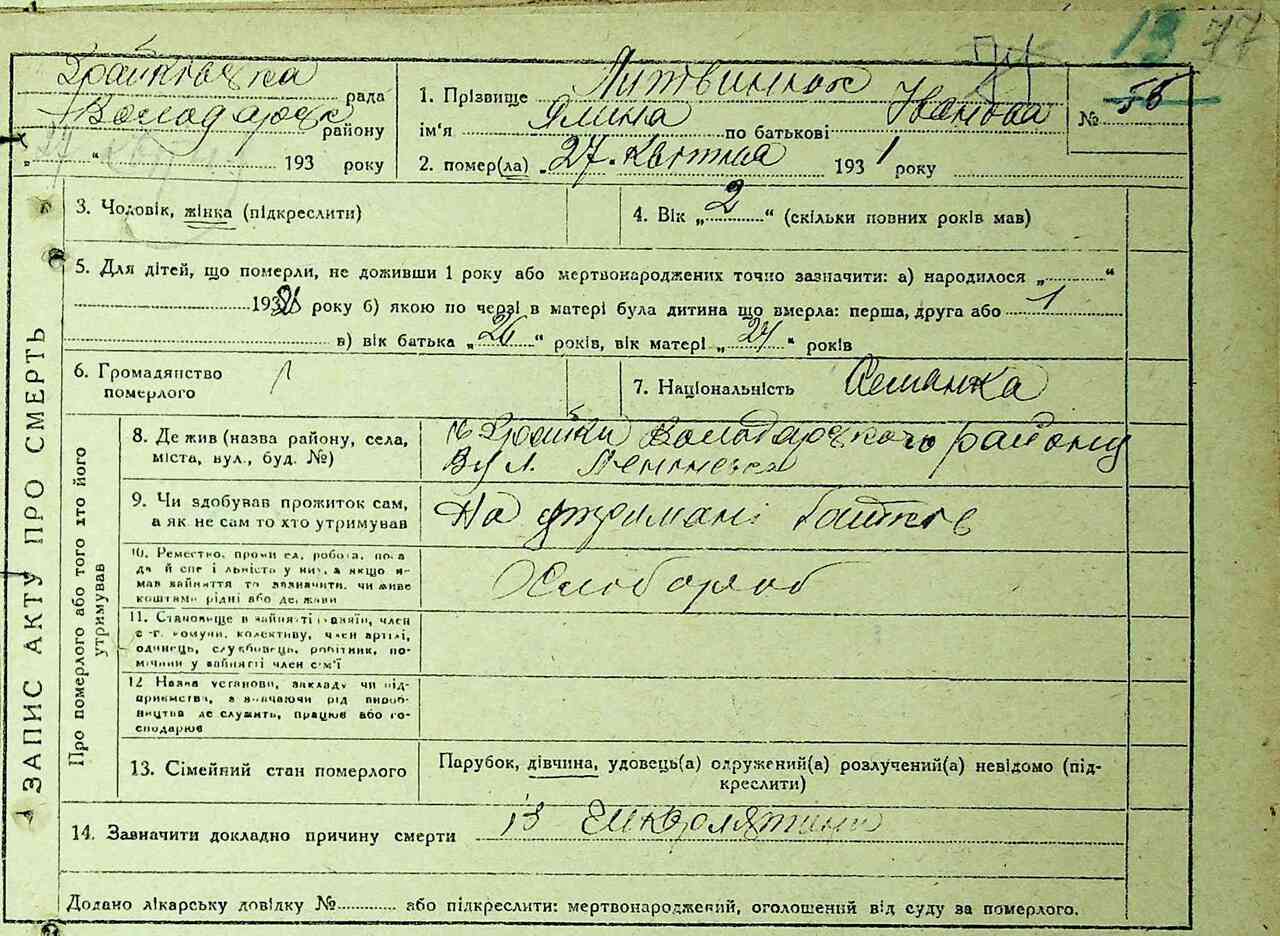 13 77
рада
Володарськ району
193 року
1. Прізвище Литвинюк
ім'я Ялина по батькові Іванова
№ 56
2. помер(ла) „27 квітня 1931 року
ЗАПИС АКТУ ПРО СМЕРТЬ
3. Чоловік, жінка (підкреслити)
4. Вік „2“ (скільки повних років мав)
5. Для дітей, що померли, не доживши 1 року або мертвонароджених точно зазначити: а) народилося „ “
193 року б) якою по черзі в матері була дитина що вмерла: перша, друга або 1
в) вік батька „26“ років, вік матері „24“ років
6. Громадянство
померлого
7. Національність
Про померлого або того хто його
утримував
8. Де жив (назва району, села,
міста, вул., буд. №)
Володарського району
Вул.
9. Чи здобував прожиток сам,
а як не сам то хто утримував
На утримані батьків
10. Ремество, промисел, робота, поса
да й спеціяльність у них, а якщо не
мав зайняття то зазначити, чи живе
коштами рідні або держави
Хлібороб
11. Становище в зайнятті хазяїн, член
с-г. комуни, колективу, член артілі,
одинець, службовець, робітник, по-
мічний у зайнятті член сім'ї
12 Назва установи, закладу чи під-
приємства, зазначаючи рід вироб-
ництва де служить, працює або го-
сподарює
13. Сімейний стан померлого
Парубок, дівчина, удовець(а) одружений(а) розлучений(а) невідомо (під-
креслити)
14. Зазначити докладно причину смерти
Додано лікарську довідку № або підкреслити: мертвонароджений, оголошений від суду за померлого.